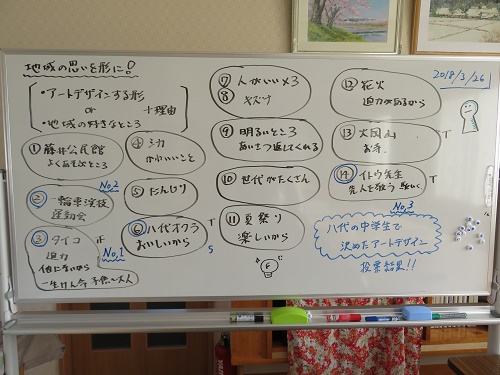 地域の思いを形に!
2018/3/26
・アートデザインする形
or 十理由
・地域の好きなところ
① 藤井公民館
よくあそぶところ
② 一輪車演技
運動会
No,2
③ タイコ 正
迫力
他にないから
一生けん命
No,1
④ シカ
かわいいこと
⑤ だんじり
⑥ 八代オクラ T
おいしいから
5
⑦ 人がいい×3
⑧ キズナ
⑨ 明るいところ
あいさつ返してくれる
⑩ 世代がたくさん
⑪ 夏祭り
楽しいから
⑫ 花火
迫力があるから
⑬ T
⑭ イトウ先生 T
No,3
八代の中学生で
決めたアートデザイン
投票結果!!